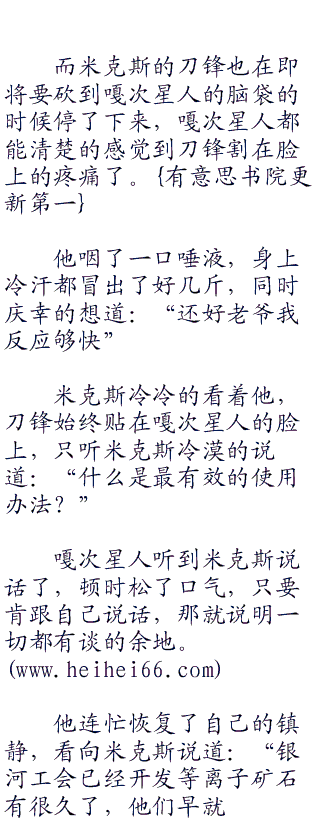 而米克斯的刀锋也在即
将要砍到嘎次星人的脑袋的
时候停了下来，嘎次星人都
能清楚的感觉到刀锋割在脸
上的疼痛了。{有意思书院更
新第一}
他咽了一口唾液，身上
冷汗都冒出了好几斤，同时
庆幸的想道：“还好老爷我
反应够快”
米克斯冷冷的看着他，
刀锋始终贴在嘎次星人的脸
上，只听米克斯冷漠的说
道：“什么是最有效的使用
办法？”
嘎次星人听到米克斯说
话了，顿时松了口气，只要
肯跟自己说话，那就说明一
切都有谈的余地。
(www.heihei66.com)
他连忙恢复了自己的镇
静，看向米克斯说道：“银
河工会已经开发等离子矿石
有很久了，他们早就